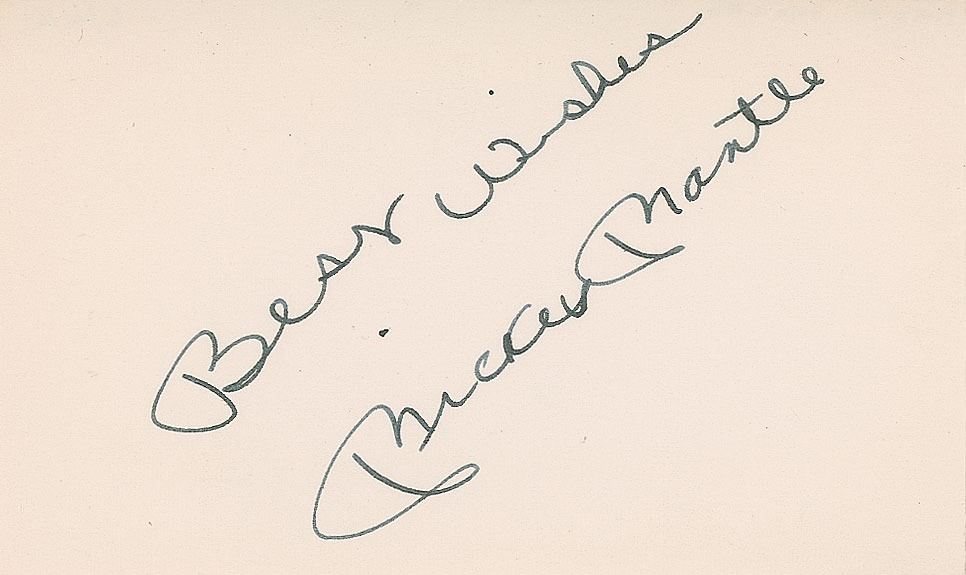 Best Wishes
Mickey Mantle